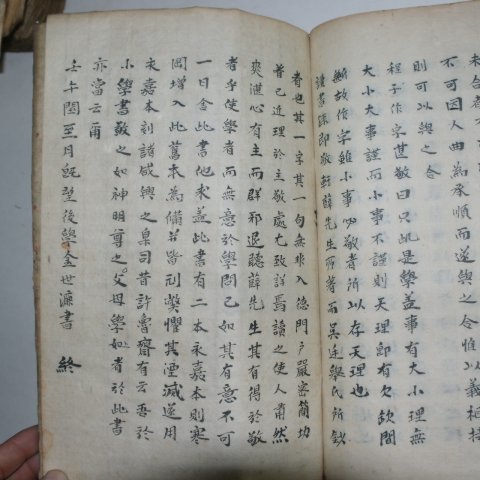 未合者
不可因人曲為承順而遂與之合惟以義相接
則可以與之合
程子作字甚敬曰只此是學盖事有大小理無
大小大事謹而小事不謹則天理即有欠缺間
斷故作字雖小事必敬者所以存天理也
讀書
者也其一字其一句無非入德門戶嚴密簡切
普已近理於主敬處尤致詳焉讀之使人肅然
爽湛心有主而群邪退聽薛先生其有得於敬
者乎使學者而無意於學問已如其有意不可
一日舍此書他求盖此書有二本永嘉本則寒
岡增入此舊本為備若當刊奬懼其湮滅遂用
永嘉本刻諸咸興之臬司昔許魯齋有云吾於
小學書敬之如神明尊之父母學如者於此書
亦當云爾
壬午閏至月旣望後學金世濂書 終